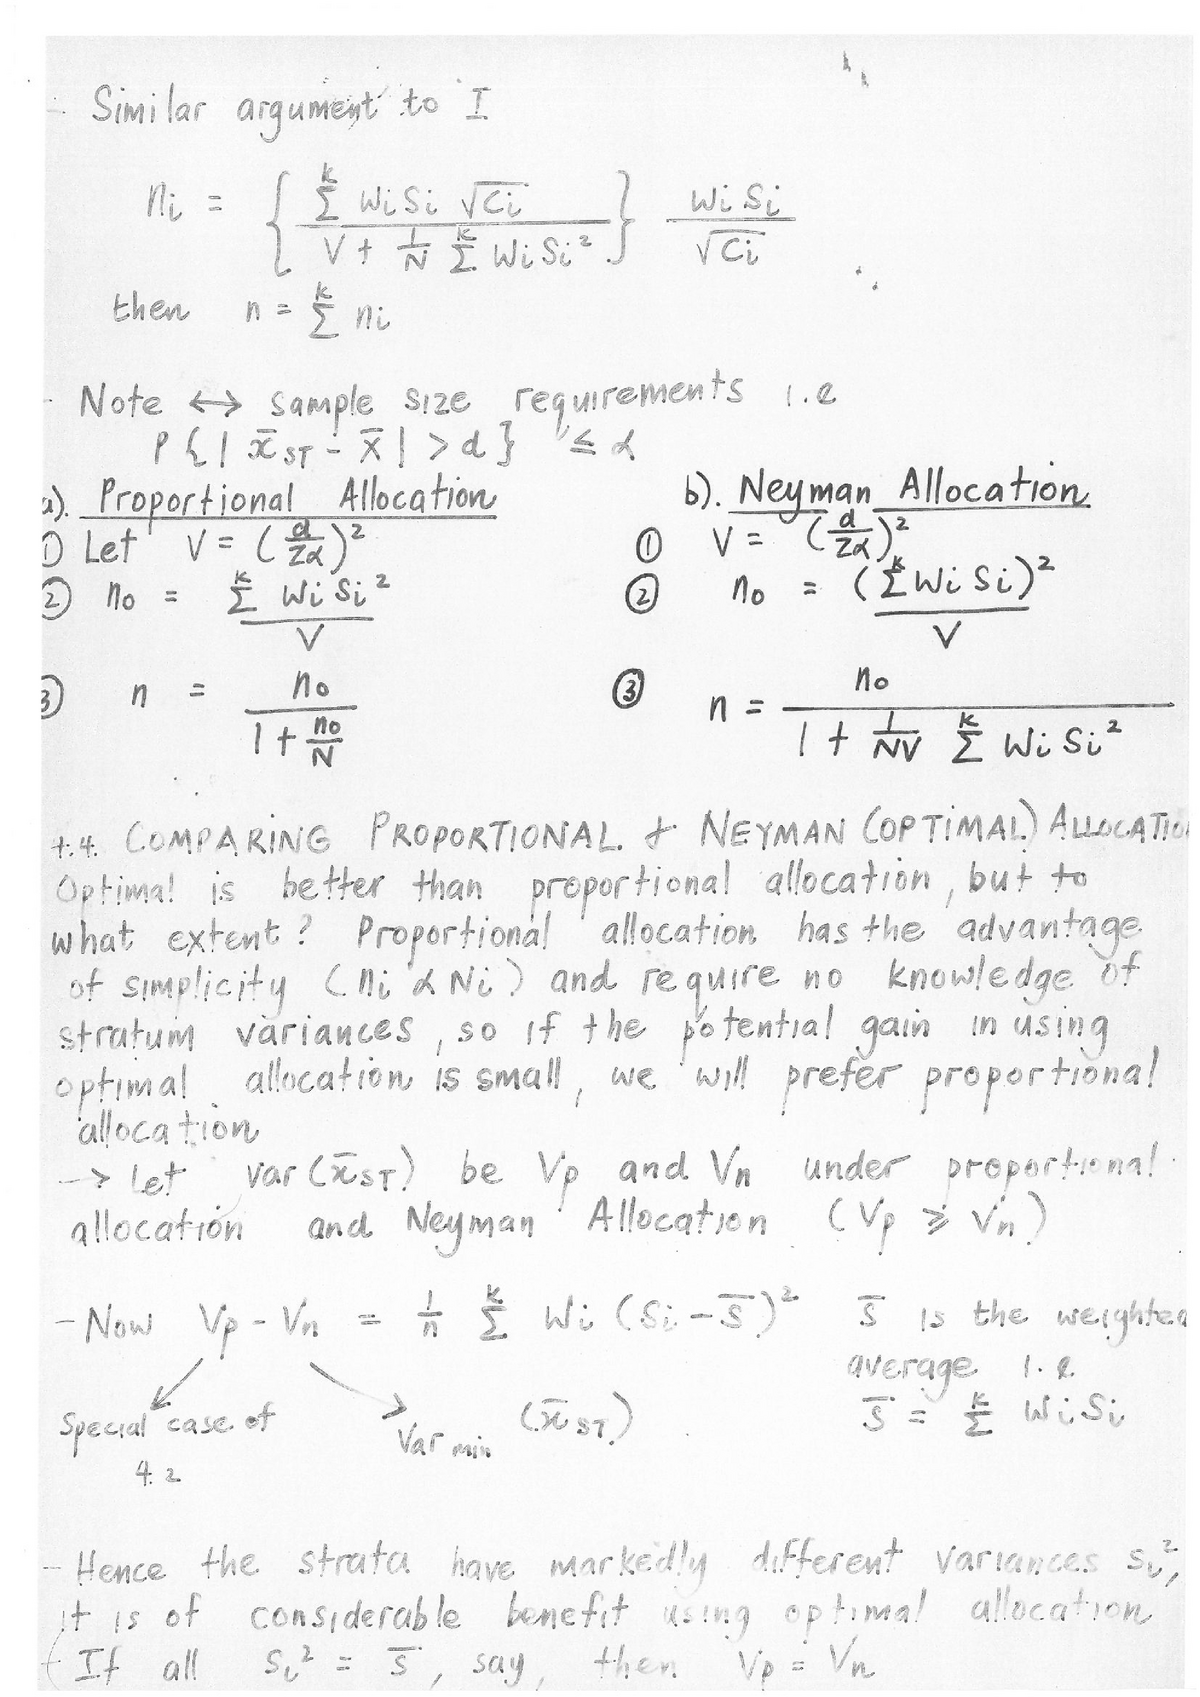 - Similar argument to I
ni = { Σ^k Wi Si √Ci / V + 1/N Σ^k Wi Si² } Wi Si / √Ci
then n = Σ^k ni
- Note ↔ sample size requirements i.e
P { | x̄ST - X̄ | > d } ≤ α
a). Proportional Allocation
① Let V = (d/Zα)²
② no = Σ^k Wi Si² / V
③ n = no / 1 + no/N
b). Neyman Allocation
① V = (d/Zα)²
② no = (Σ^k Wi Si)² / V
③ n = no / 1 + 1/NV Σ^k Wi Si²
4.4. COMPARING PROPORTIONAL & NEYMAN (OPTIMAL) ALLOCATIO
Optimal is better than proportional allocation, but to
what extent? Proportional allocation has the advantage
of simplicity (ni α Ni) and require no knowledge of
stratum variances, so if the potential gain in using
optimal allocation is small, we will prefer proportional
allocation
→ Let var (x̄ST) be Vp and Vn under proportional
allocation and Neyman Allocation (Vp ⩾ Vn)
- Now Vp - Vn = 1/n Σ^k Wi (Si - S̄)² S̄ is the weighted
average i.e.
S̄ = Σ^k Wi Si
Special case of
4.2
Var min (x̄ST)
- Hence the strata have markedly different variances Si²,
it is of considerable benefit using optimal allocation
If all Si² = S̄, say, then Vp = Vn